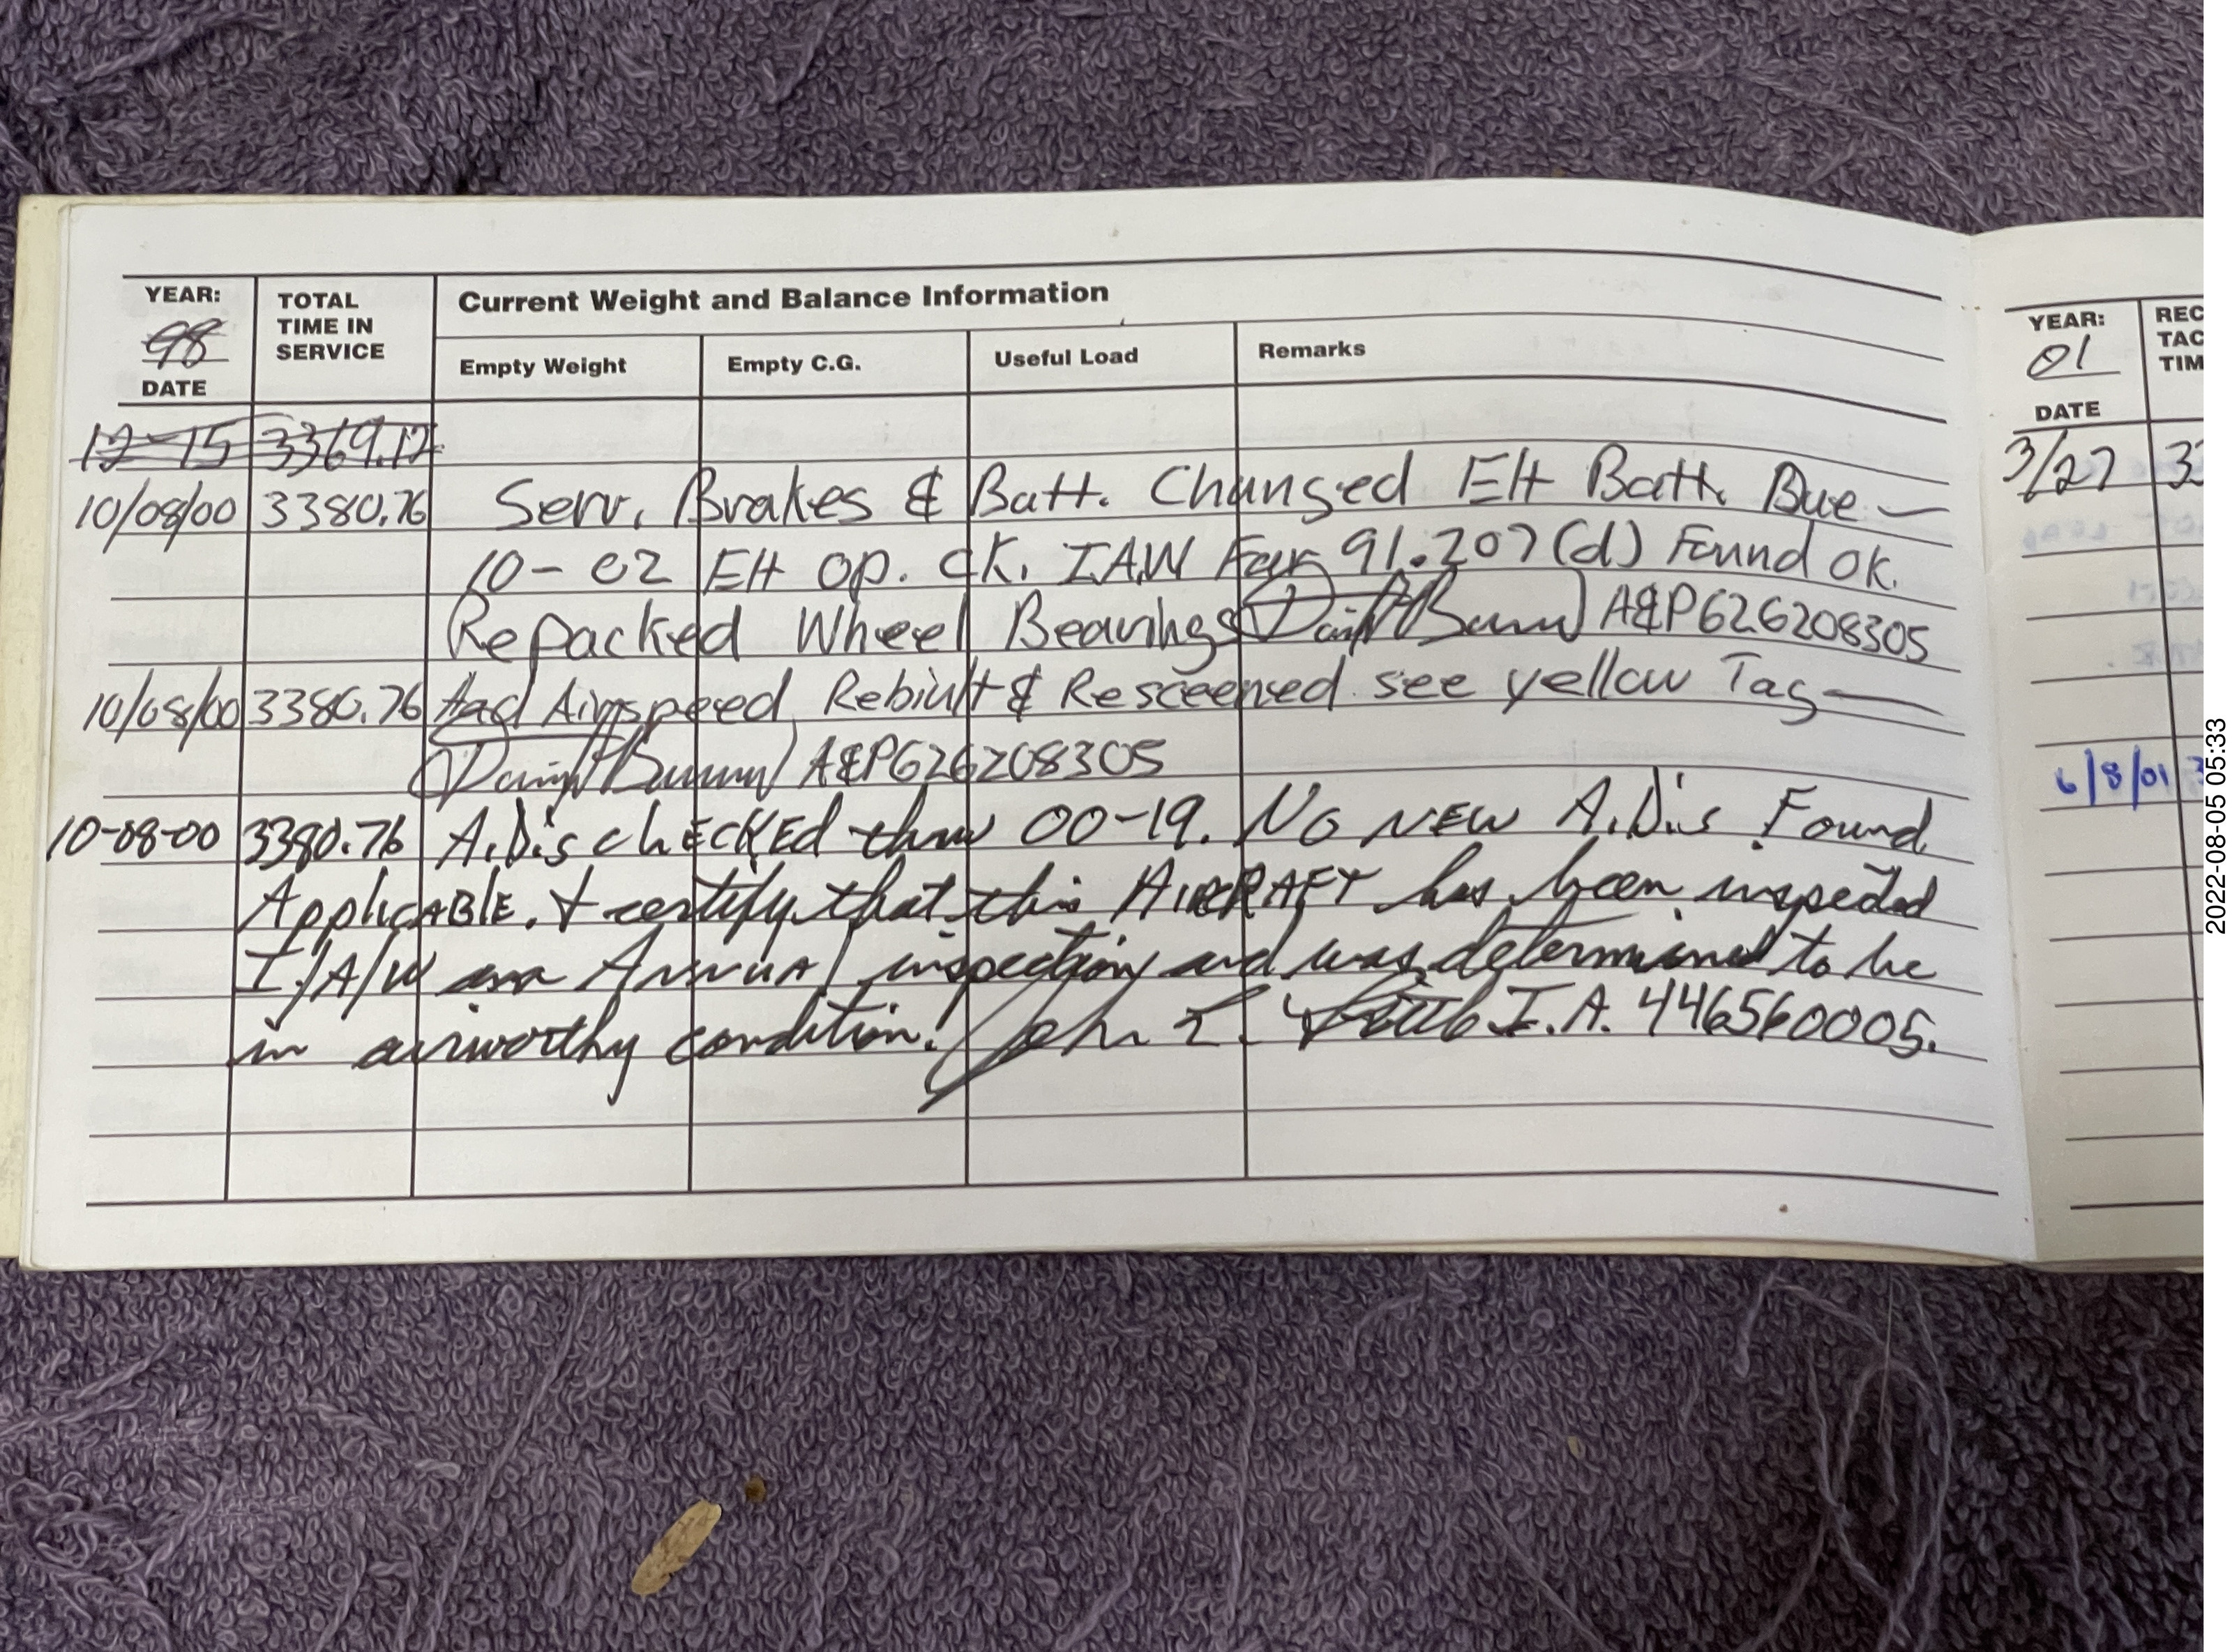 YEAR: TOTAL TIME IN SERVICE Current Weight and Balance Information
98
DATE Empty Weight Empty C.G. Useful Load Remarks
12-15 3369.12
10/08/00 3380.76 Serv. Brakes & Batt. Changed Elt Batt. Due
10-02 Elt op. ck. IAW Far 91.207(d) Found ok.
Repacked Wheel Bearings A&P626208305
10/08/00 3380.76 Had Airspeed Rebiult & Resceened see yellow Tag
A&P626208305
10-08-00 3380.76 A.D.'s chECKEd thru 00-19. No NEW A.D.'s Found
ApplicABlE. I certify that this AIRCRAFT has been inspected
I/A/W an AnnuAl inspection and was determined to be
in airworthy condition. John L. I.A. 446560005.
YEAR: REC
01 TAC
TIM
DATE
3/27
6/8/01
2022-08-05 05:33